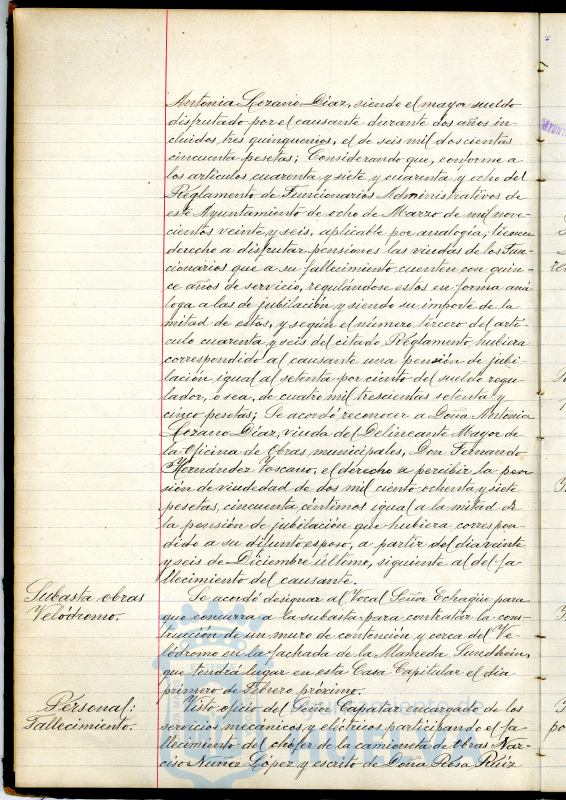 Antonia Lozano Diaz, siendo el mayor sueldo
disfrutado por el causante durante dos años in-
cluidos tres quinquenios, el de seis mil doscientas
cincuenta pesetas; Considerando que, conforme a
los artículos cuarenta y siete y cuarenta y ocho del
Reglamento de Funcionarios Administrativos de
este Ayuntamiento de ocho de Marzo de mil nove-
cientos veinte y seis, aplicable por analogia, tienen
derecho a disfrutar pensiones las viudas de los Fun-
cionarios que a su fallecimiento cuenten con quin-
ce años de servicio, regulándose estos en forma aná-
loga a las de jubilación y siendo su importe de la
mitad de estas, y según el número tercero del artí-
culo cuarenta y seis del citado Reglamento hubiera
correspondido al causante una pensión de jubi-
lación igual al setenta por ciento del sueldo regu-
lador, o sea, de cuatro mil trescientas setenta y
cinco pesetas; Se acordó reconocer a Doña Antonia
Lozano Diaz, viuda del Delineante Mayor de
la Oficina de Obras municipales, Don Fernando
Hernández Toscano, el derecho a percibir la pen-
sión de viudedad de dos mil ciento ochenta y siete
pesetas, cincuenta céntimos igual a la mitad de
la pensión de jubilación que hubiera correspon-
dido a su difunto esposo, a partir del dia veinte
y seis de Diciembre último, siguiente al del fa-
llecimiento del causante.
Subasta obras
Velódromo.
Se acordó designar al Vocal Señor Echagüe para
que concurra a la subasta para contratar la cons-
trucción de un muro de contención y cerca del Ve-
lódromo en la fachada de la Alameda Sundheim,
que tendrá lugar en esta Casa Capitular el dia
primero de Febrero próximo.
Personal:
Fallecimiento.
Visto oficio del Señor Capataz encargado de los
servicios mecánicos y eléctricos participando el fa-
llecimiento del chófer de la camioneta de obras Nar-
ciso Nuñez López y escrito de Doña Rosa Ruiz